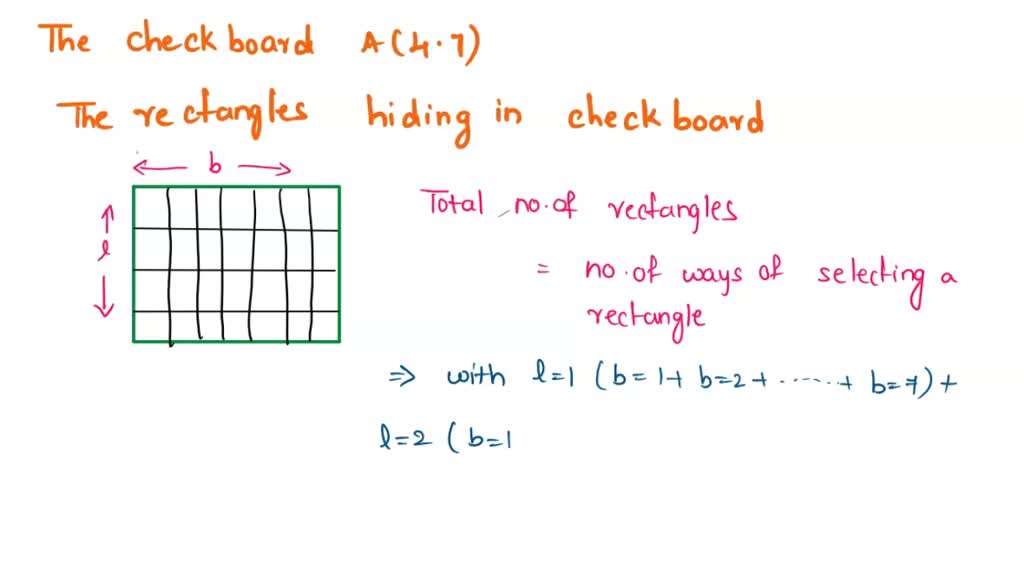 The checkboard A(4.7)
The rectangles hiding in checkboard
b
l
Total no. of rectangles
= no. of ways of selecting a
rectangle
⇒ with l=1 (b=1+ b=2+ ......+ b=7)+
l=2 (b=1